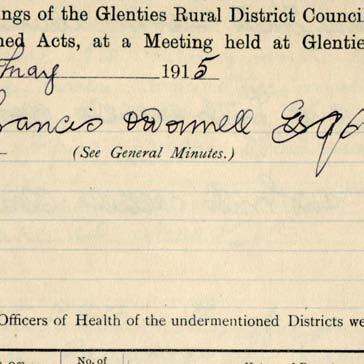 ings of the Glenties Rural District Counci
ned Acts, at a Meeting held at Glentie
May 1915
rancis O'Donnell Esq
(See General Minutes.)
Officers of Health of the undermentioned Districts we
No. of